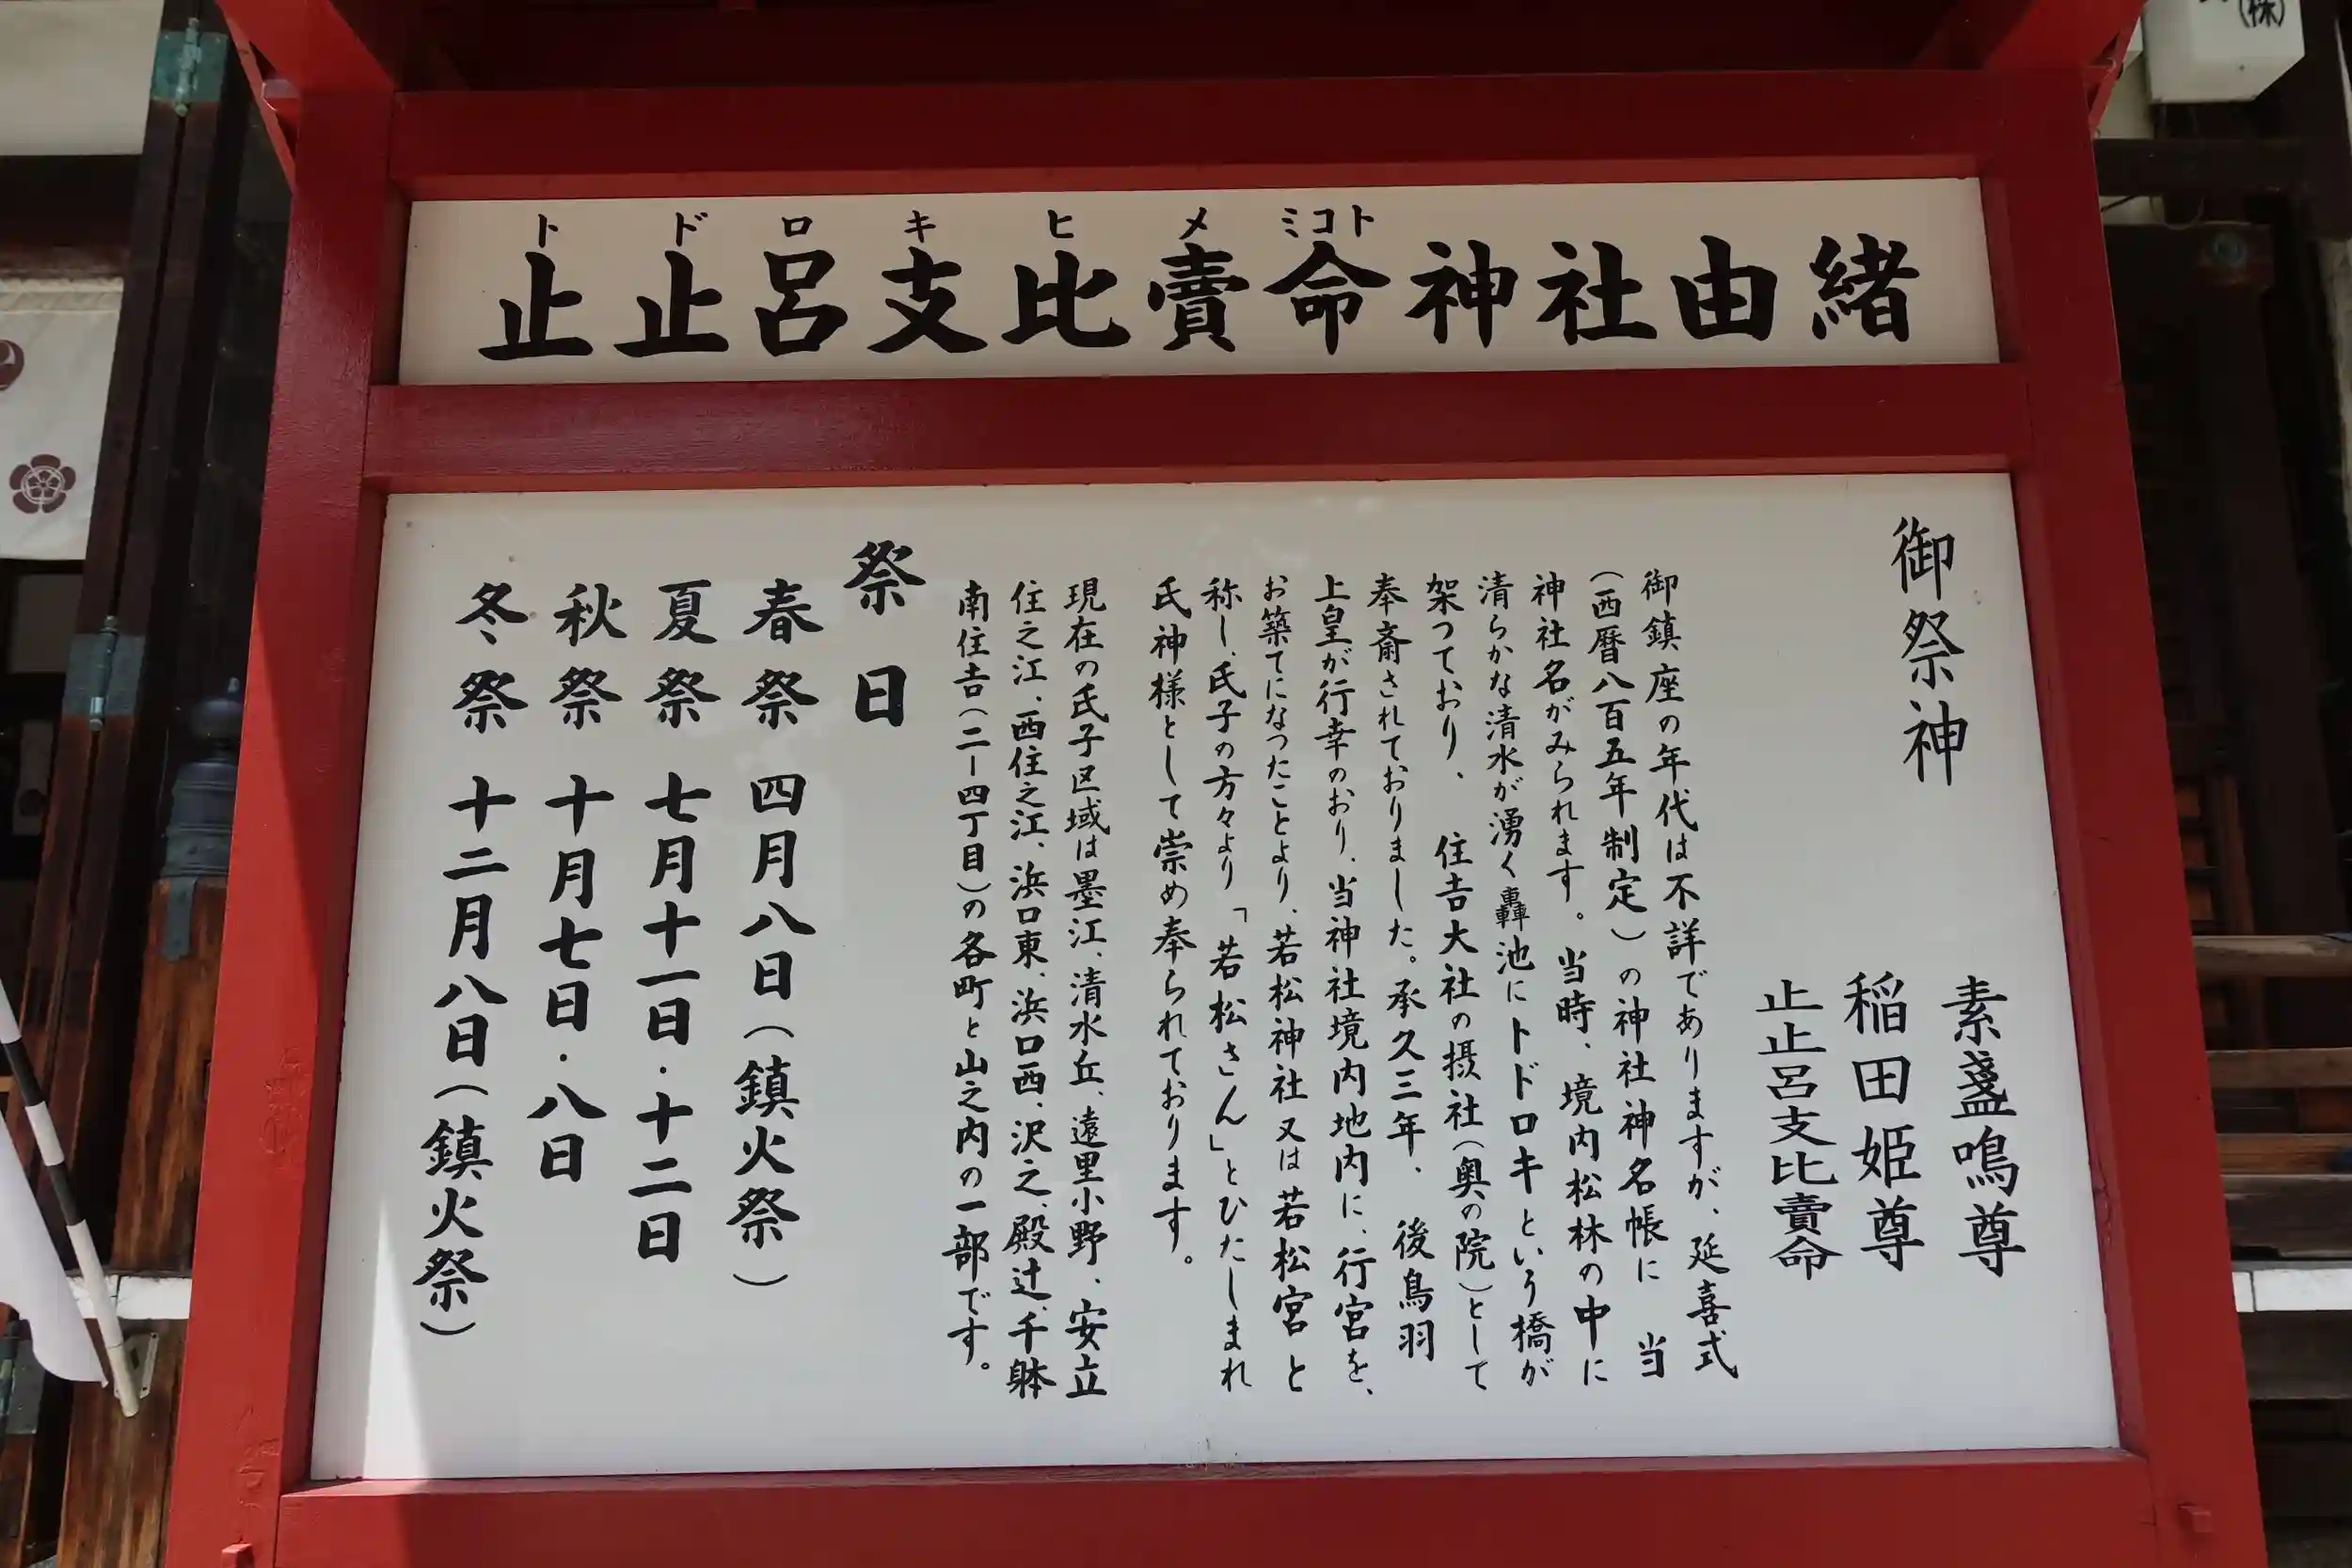 (株)
トドロキヒメミコト
止止呂支比賣命神社由緒
御祭神
素盞鳴尊
稲田姫尊
止止呂支比賣命
御鎮座の年代は不詳でありますが、延喜式
(西暦八百五年制定)の神社神名帳に 当
神社名がみられます。当時、境内松林の中に
清らかな清水が湧く轟池にトドロキという橋が
架つており、 住吉大社の摂社(奥の院)として
奉斎されておりました。承久三年、 後鳥羽
上皇が行幸のおり、当神社境内地内に、行宮を、
お築てになつたことより、若松神社又は若松宮と
称し、氏子の方々より「若松さん」とひたしまれ
氏神様として崇め奉られております。
現在の氏子区域は墨江、清水丘、遠里小野、安立
住之江、西住之江、浜口東、浜口西、沢之、殿辻、千躰
南住吉(二ー四丁目)の各町と山之内の一部です。
祭日
春祭 四月八日(鎮火祭)
夏祭 七月十一日・十二日
秋祭 十月七日・八日
冬祭 十二月八日(鎮火祭)